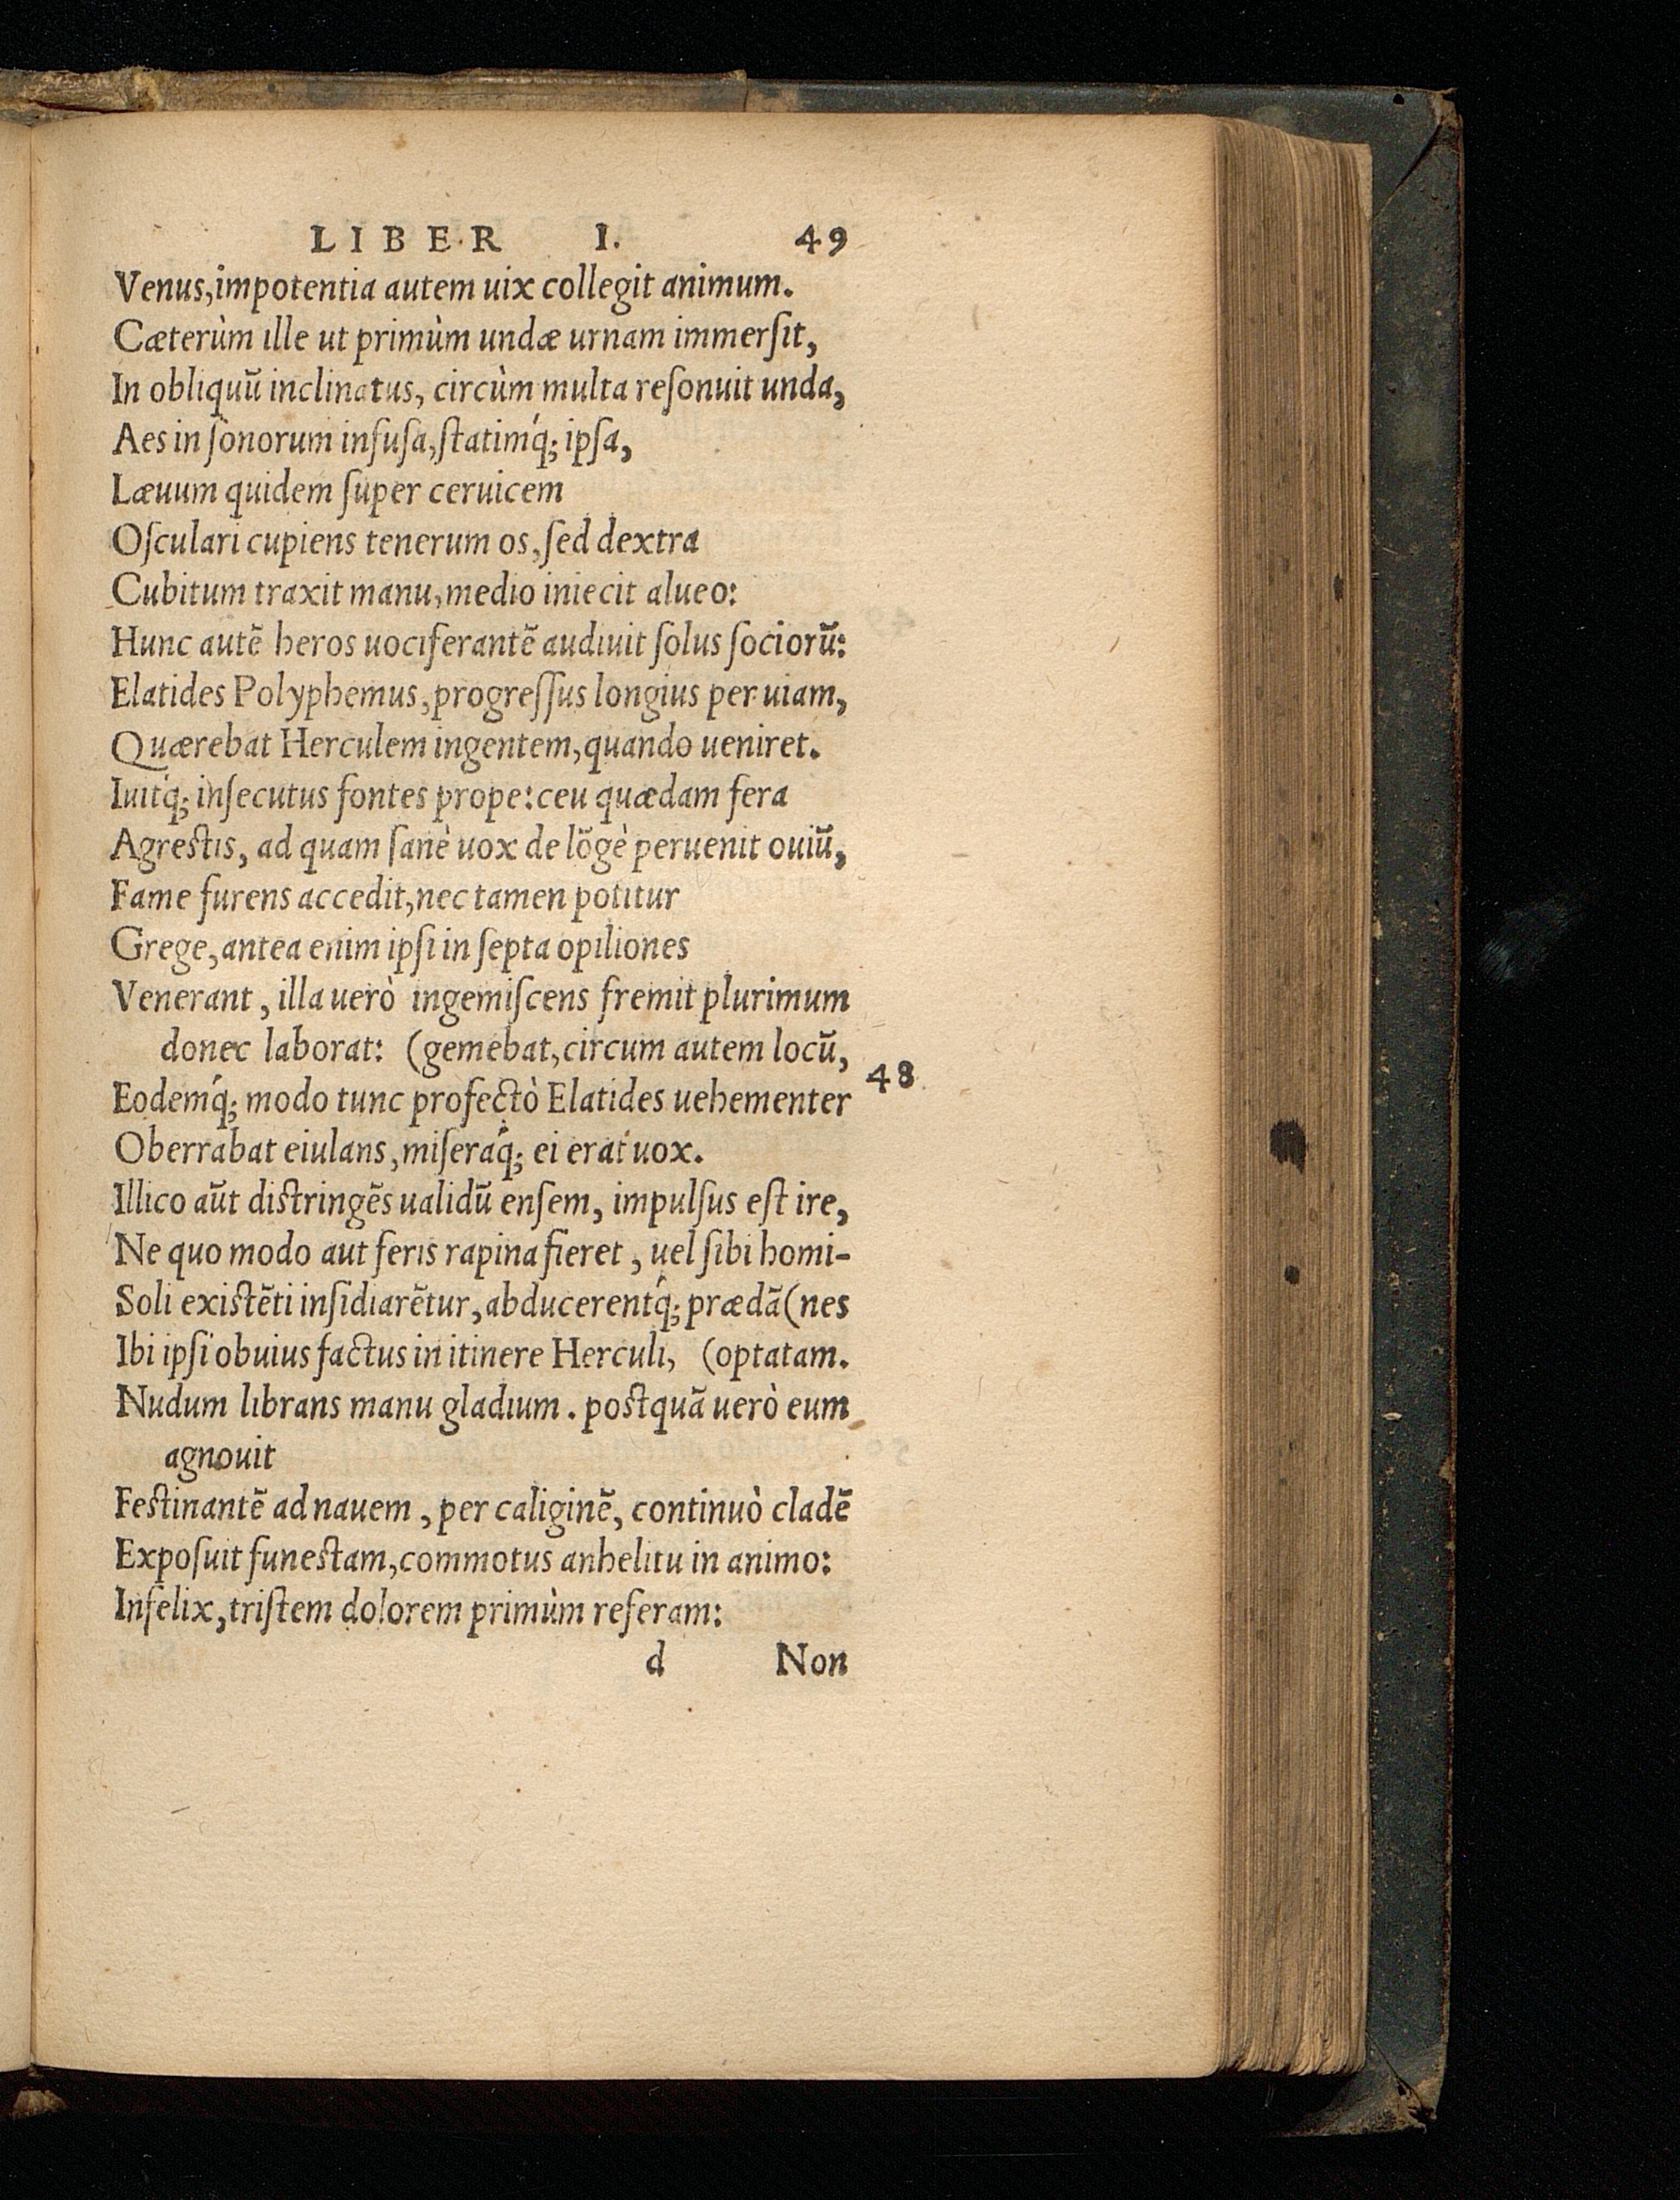 LIBER I. 49
Venus,impotentia autem uix collegit animum.
Cæterùm ille ut primùm undæ urnam immerſit,
In obliquũ inclinatus, circùm multa reſonuit unda,
Aes in ſonorum infuſa,ſtatimq́; ipſa,
Læuum quidem ſuper ceruicem
Oſculari cupiens tenerum os,ſed dextra
Cubitum traxit manu,medio iniecit alueo:
Hunc autẽ heros uociferantẽ audiuit ſolus ſociorũ:
Elatides Polyphemus,progreſſus longius per uiam,
Quærebat Herculem ingentem,quando ueniret.
Iuitq́; inſecutus fontes prope:ceu quædam fera
Agreſtis, ad quam ſanè uox de lõgè peruenit ouiũ,
Fame furens accedit,nec tamen potitur
Grege,antea enim ipſi in ſepta opiliones
Venerant, illa uerò ingemiſcens fremit plurimum
donec laborat: (gemebat,circum autem locũ,
48
Eodemq́; modo tunc profectò Elatides uehementer
Oberrabat eiulans,miſeraq́; ei erat uox.
Illico aũt diſtringẽs ualidũ enſem, impulſus eſt ire,
Ne quo modo aut feris rapina fieret, uel ſibi homi-
Soli exiſtẽti inſidiarẽtur,abducerentq́; prædã(nes
Ibi ipſi obuius factus in itinere Herculi, (optatam.
Nudum librans manu gladium. poſtquã uerò eum
agnouit
Feſtinantẽ ad nauem, per caliginẽ, continuò cladẽ
Expoſuit funeſtam,commotus anhelitu in animo:
Infelix,triſtem dolorem primùm referam:
d Non